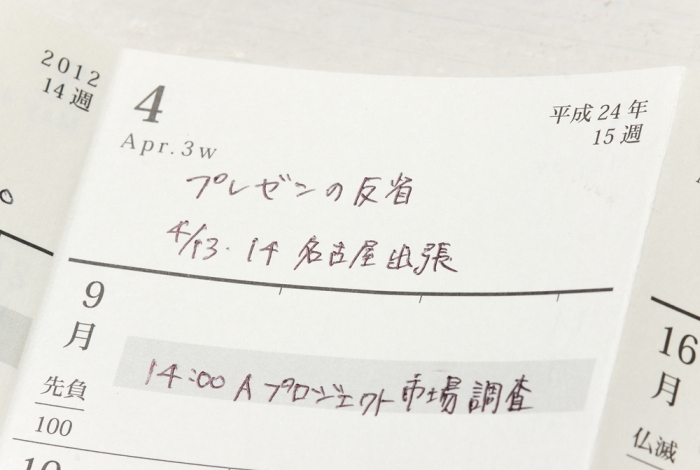 2012
14週
4
Apr.3w
平成24年
15週
プレゼンの反省
4/13.14 名古屋出張
9
月
先負
100
14:00 Aプロジェクト市場調査
10
16
月
仏滅